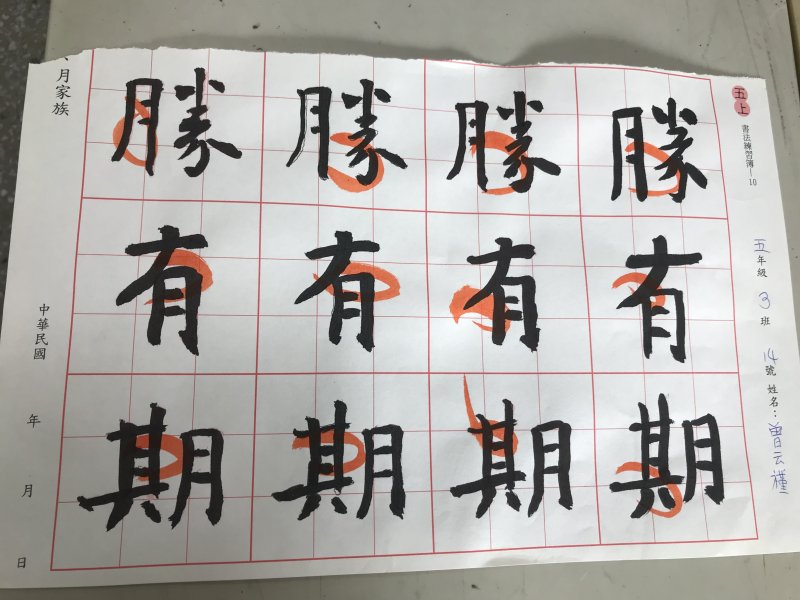 五上
書法練習簿—10
五年級 3班 14號 姓名：曾云槿
勝勝勝勝
有有有有
期期期期
月家族
中華民國 年 月 日